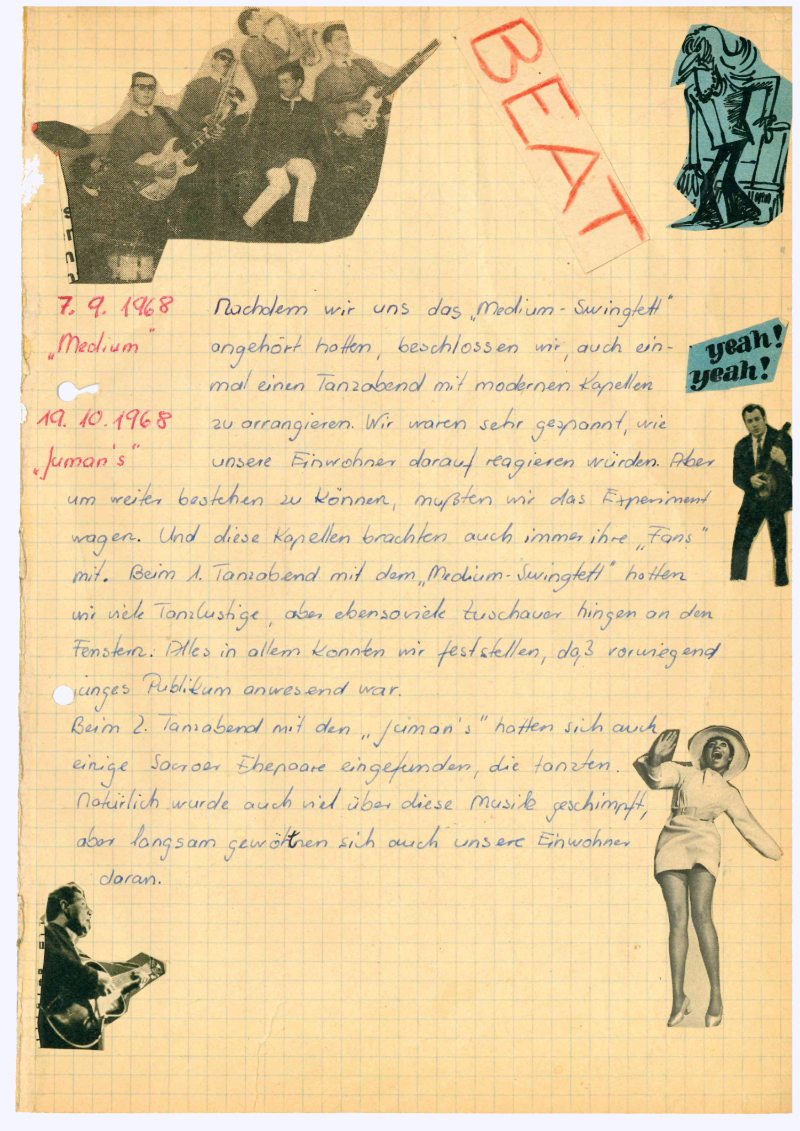 BEAT
7. 9. 1968 Nachdem wir uns das „Medium-Swingtett"
„Medium" angehört hatten, beschlossen wir, auch ein-
yeah!
yeah!
mal einen Tanzabend mit modernen Kapellen
19. 10. 1968 zu arrangieren. Wir waren sehr gespannt, wie
„Juman's" unsere Einwohner darauf reagieren würden. Aber
um weiter bestehen zu können, mußten wir das Experiment
wagen. Und diese Kapellen brachten auch immer ihre „Fans"
mit. Beim 1. Tanzabend mit dem „Medium-Swingtett" hatten
wir viele Tanzlustige, aber ebensoviele Zuschauer hingen an den
Fenstern. Alles in allem konnten wir feststellen, daß vorwiegend
junges Publikum anwesend war.
Beim 2. Tanzabend mit den „Juman's" hatten sich auch
einige Sacroer Ehepaare eingefunden, die tanzten.
Natürlich wurde auch viel über diese Musik geschimpft,
aber langsam gewöhnen sich auch unsere Einwohner
daran.